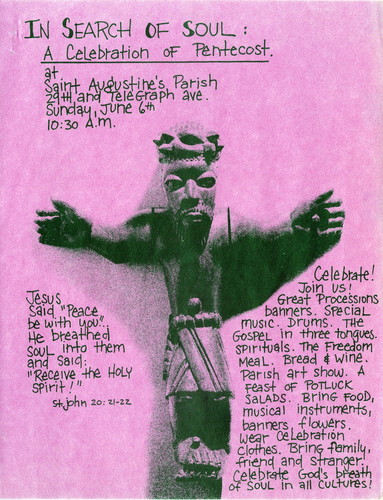 IN SEARCH OF SOUL:
A CELEBRATION OF PENTECOST.
at
Saint Augustine's, Parish
29th and Telegraph ave.
Sunday, June 6th
10:30 A.M.
Jesus
Said "Peace
be with you".
He breathed
SOUL into them
and said:
"Receive the HOLY
Spirit!"
St. John 20: 21-22
Celebrate!
Join us!
Great Processions
banners. Special
music. Drums. The
GOSPEL in three tongues.
Spirituals. The Freedom
Meal. Bread & Wine.
Parish art show. A
feast of POTLUCK
SALADS. Bring FOOD,
musical instruments,
banners, flowers.
Wear Celebration
Clothes. Bring family,
friend and stranger!
Celebrate God's breath
of SOUL in all cultures!